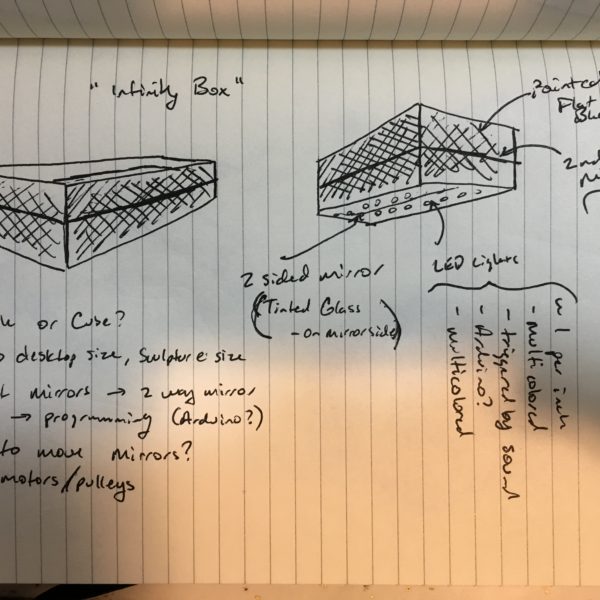 "Infinity Box"
Painted
Flat
2nd
2 sided mirror
(Tinted Glass
- on mirror side)
LED Lights
1 per inch
- multicolored
- triggered by sound
- Arduino?
- multicolored
or Cube?
desktop size, Sculpture size
mirrors → 2 way mirror
→ programming (Arduino?)
to move mirrors?
motors/pulleys